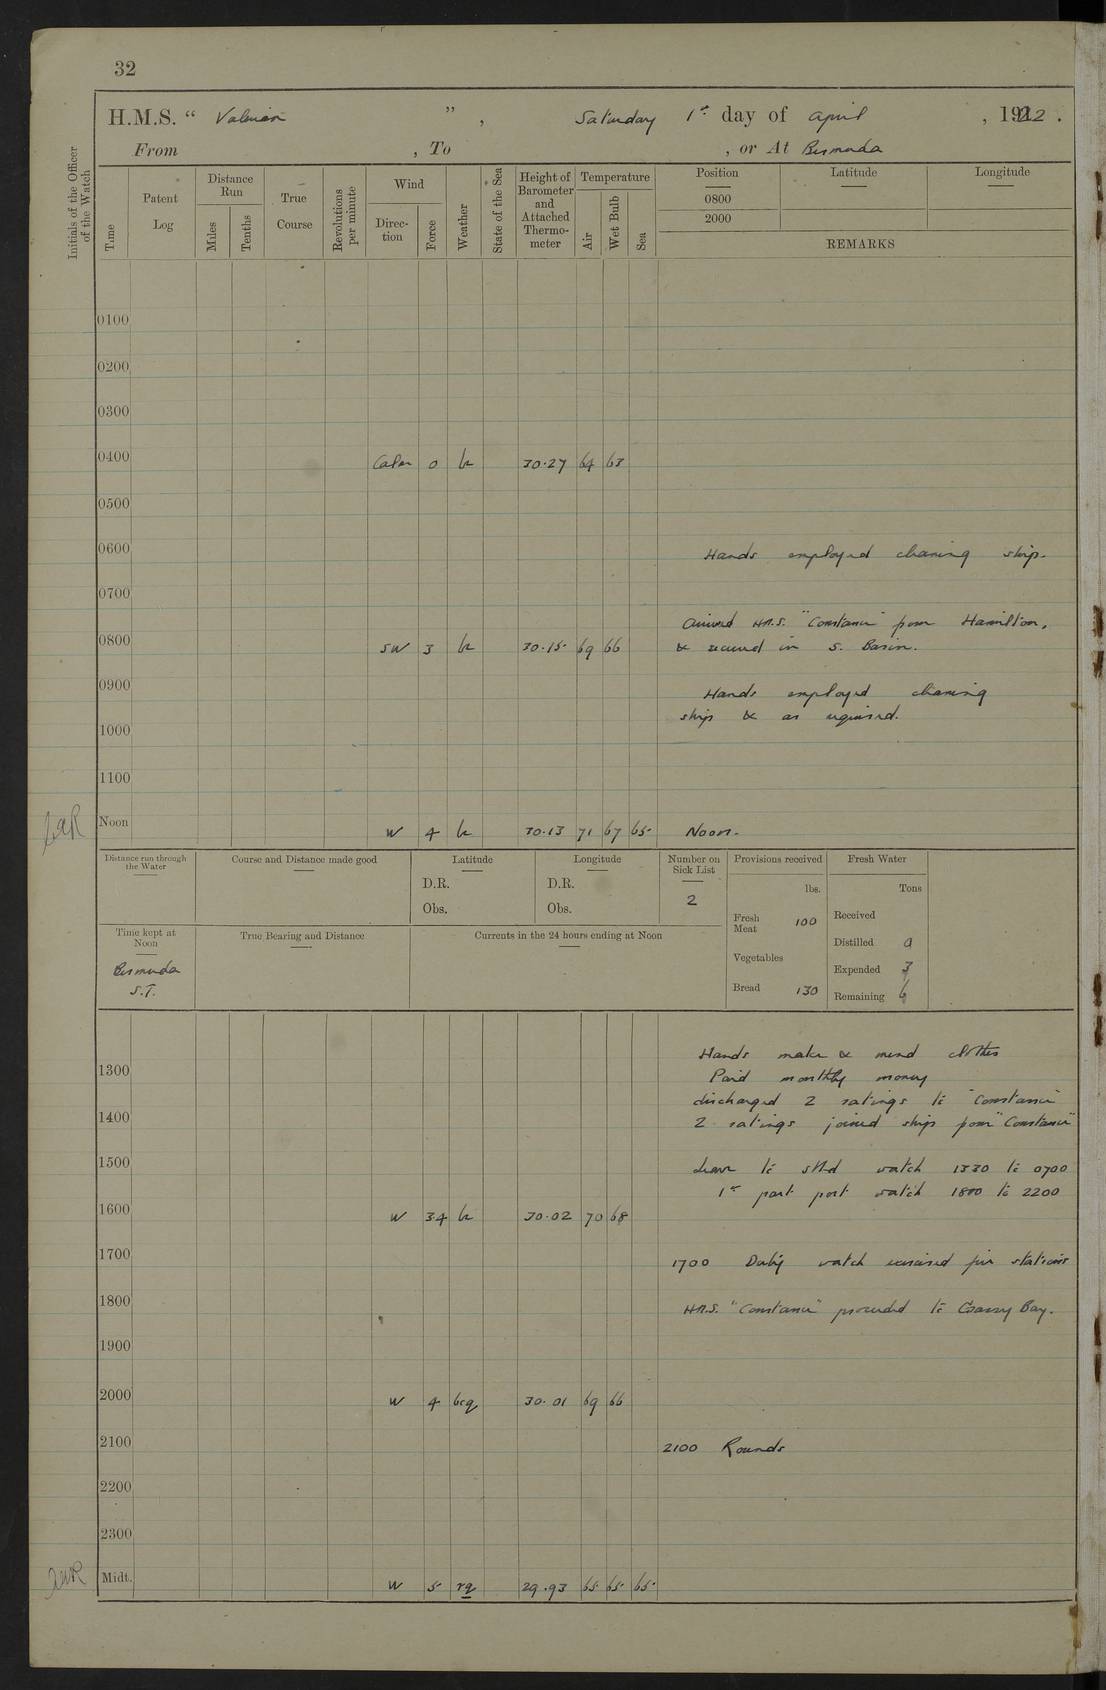 32
H.M.S. " Valerian ", Saturday 1st day of April , 1922 .
From , To , or At Bermuda
Initials of the Officer of the Watch
Time
Patent Log
Distance Run
Miles
Tenths
True Course
Revolutions per minute
Wind
Direc-tion
Force
Weather
State of the Sea
Height of Barometer and Attached Thermo-meter
Temperature
Air
Wet Bulb
Sea
Position Latitude Longitude
0800
2000
REMARKS
0100
0200
0300
0400 Calm 0 bc 30.27 64 63
0500
0600 Hands employed cleaning ship.
0700
Arrived H.M.S. "Constance" from Hamilton,
0800 SW 3 bc 30.15 69 66 & secured in S. Basin.
0900 Hands employed cleaning
ship & as required.
1000
1100
Noon W 4 bc 30.13 71 67 65 Noon.
Distance run through the Water
Course and Distance made good
Latitude
D.R.
Obs.
Longitude
D.R.
Obs.
Number on Sick List
2
Provisions received
lbs.
Fresh Meat 100
Vegetables
Bread 130
Fresh Water
Tons
Received
Distilled
Expended 3
Remaining 6
Time kept at Noon
Bermuda
S.T.
True Bearing and Distance
Currents in the 24 hours ending at Noon
Hands make & mend clothes
1300 Paid monthly money
discharged 2 ratings to "Constance"
1400 2 ratings joined ship from "Constance"
1500 Leave to stbd watch 1330 to 0700
1st part port watch 1800 to 2200
1600 W 34 bc 30.02 70 68
1700 1700 Duty watch exercised fire stations
1800 H.M.S. "Constance" proceeded to Grassy Bay.
1900
2000 W 4 bcq 30.01 69 66
2100 2100 Rounds
2200
2300
Midt. W 5 rq 29.93 65 65 65